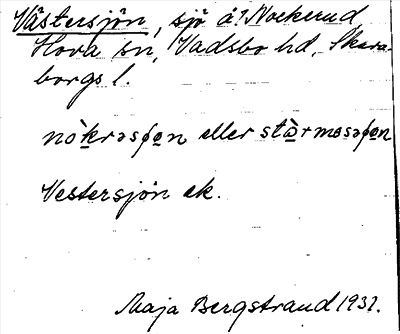 Västersjön, sjö å? Nockerud,
Hova sn, Vadsbo hd, Skara-
borgs l.
nò̱krəsʃo̱n eller stà̱rmosəʃo̱n
Vestersjön ek.
Maja Bergstrand 1931.